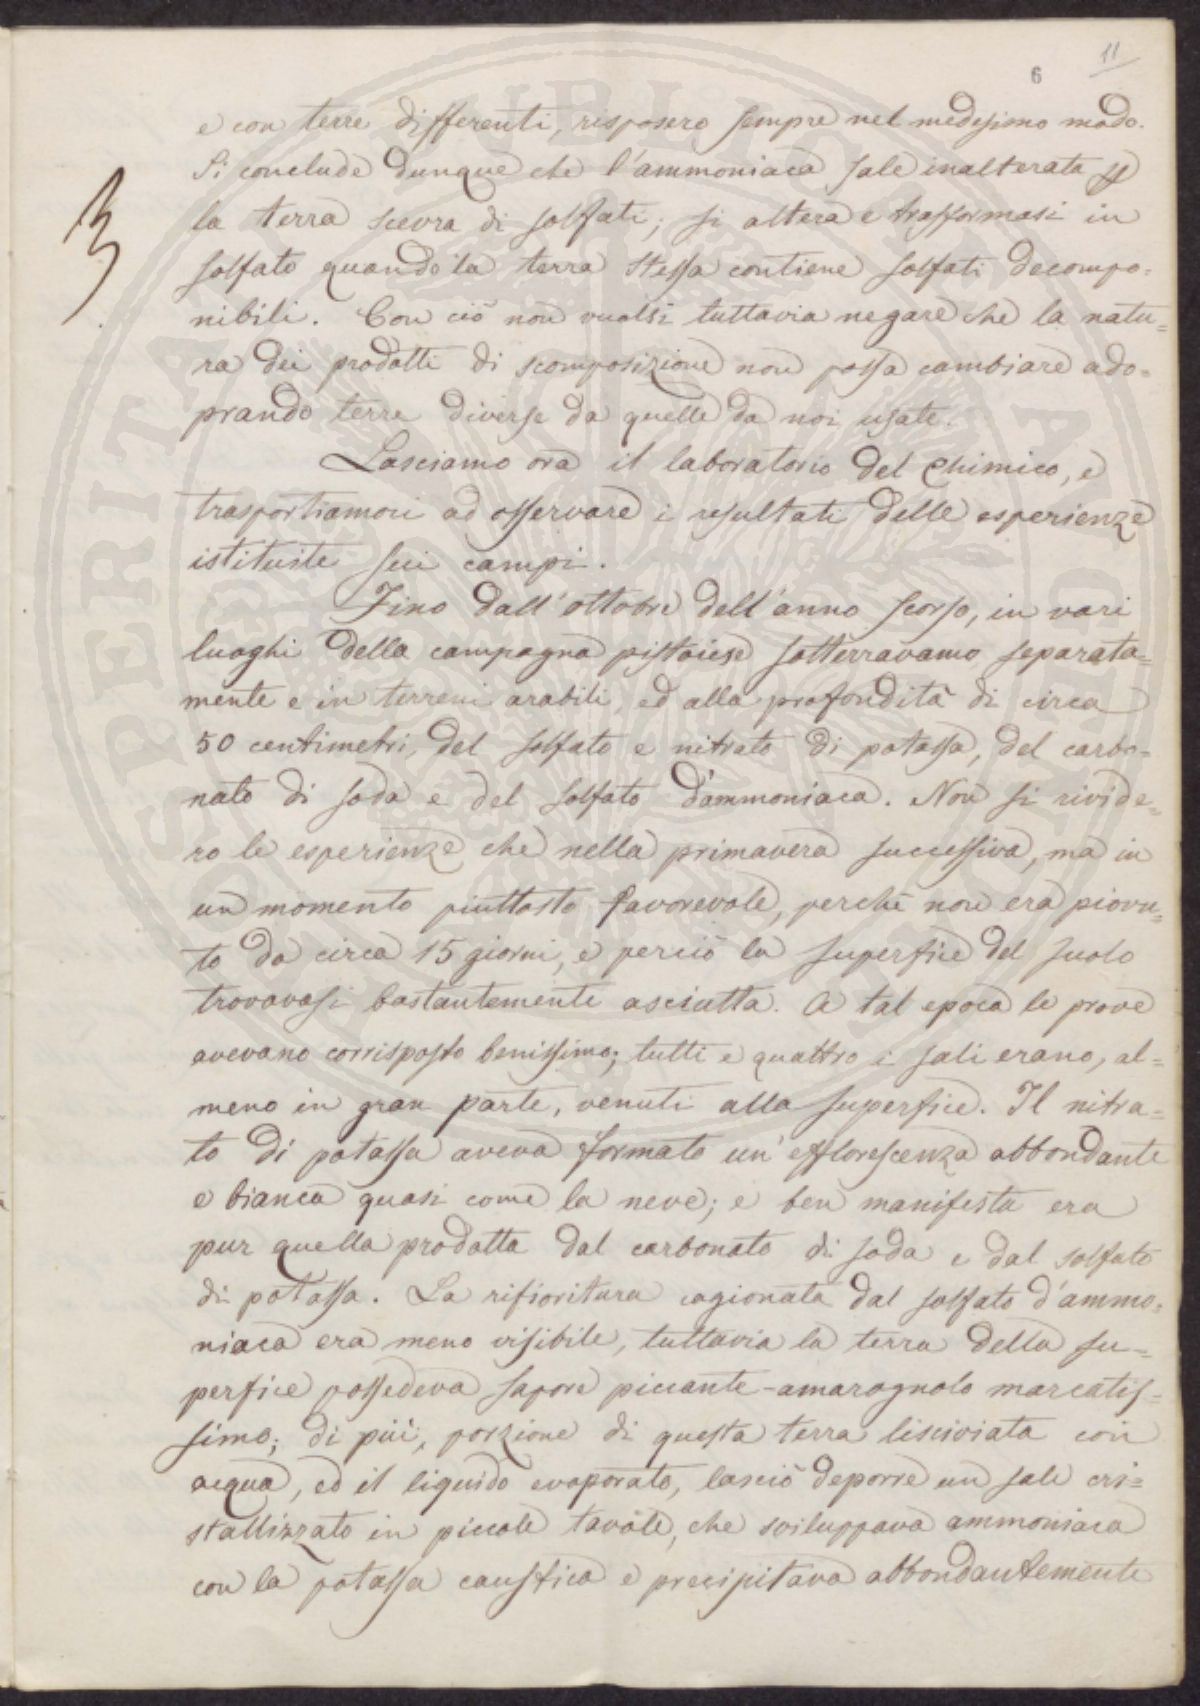 11
6
e con terre differenti, risposero sempre nel medesimo modo.
Si conclude dunque che l'ammoniaca sale inalterata p
la terra scevra di solfati; si altera e trasformasi in
solfato quando la terra stessa contiene solfati decompo=
nibili. Con ciò non vuolsi tuttavia negare che la natu=
ra dei prodotti di scomposizione non possa cambiare ado=
prando terre diverse da quelle da noi usate.
Lasciamo ora il laboratorio del Chimico, e
trasportiamoci ad osservare i resultati delle esperienze
istituite sui campi.
Fino dall'ottobre dell'anno scorso, in vari
luoghi della campagna pistoiese sotterravamo separata=
mente e in terreni arabili, ed alla profondità di circa
50 centimetri, del solfato e nitrato di potassa, del carbo=
nato di soda e del solfato d'ammoniaca. Non si rivide=
ro le esperienze che nella primavera successiva, ma in
un momento piuttosto favorevole, perchè non era piovu=
to da circa 15 giorni, e perciò la superfice del suolo
trovavasi bastantemente asciutta. A tal epoca le prove
avevano corrisposto benissimo; tutti e quattro i sali erano, al=
meno in gran parte, venuti alla superfice. Il nitra=
to di potassa aveva formato un'efflorescenza abbondante
e bianca quasi come la neve; e ben manifesta era
pur quella prodotta dal carbonato di soda e dal solfato
di potassa. La rifioritura cagionata dal solfato d'ammo=
niaca era meno visibile, tuttavia la terra della su=
perfice possedeva sapore piccante-amarognolo marcatis=
simo; di più, porzione di questa terra lisciviata con
acqua, ed il liquido evaporato, lasciò deporre un sale cri=
stallizzato in piccole tavole, che sviluppava ammoniaca
con la potassa caustica e precipitava abbondantemente